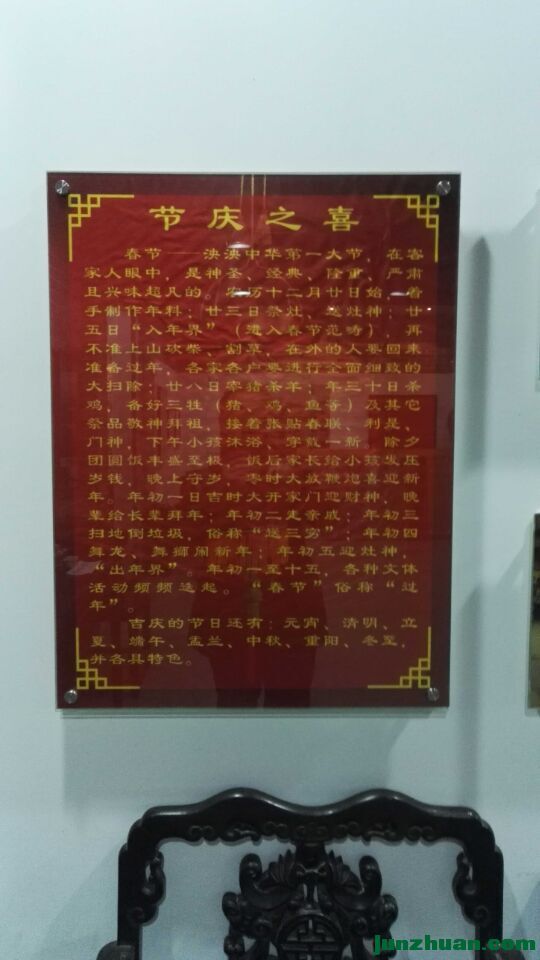 节庆之喜
春节——泱泱中华第一大节，在客
家人眼中，是神圣、经典、隆重、严肃
且兴味超凡的。农历十二月廿日始，着
手制作年料；廿三日祭灶，送灶神；廿
五日“入年界”（进入春节范畴），再
不准上山砍柴、割草，在外的人要回来
准备过年，各家各户要进行全面细致的
大扫除；廿八日宰猪杀羊；年三十日杀
鸡、备好三牲（猪、鸡、鱼等）及其它
祭品敬神拜祖，接着张贴春联、利是、
门神，下午小孩沐浴、穿戴一新，除夕
团圆饭丰盛至极，饭后家长给小孩发压
岁钱，晚上守岁，零时大放鞭炮喜迎新
年。年初一日吉时大开家门迎财神，晚
辈给长辈拜年；年初二走亲戚；年初三
扫地倒垃圾，俗称“送三穷”；年初四
舞龙、舞狮闹新年；年初五迎灶神，
“出年界”。年初一至十五，各种文体
活动频频迭起。“春节”俗称“过
年”。
吉庆的节日还有：元宵、清明、立
夏、端午、盂兰、中秋、重阳、冬至，
并各具特色。
junzhuan.com